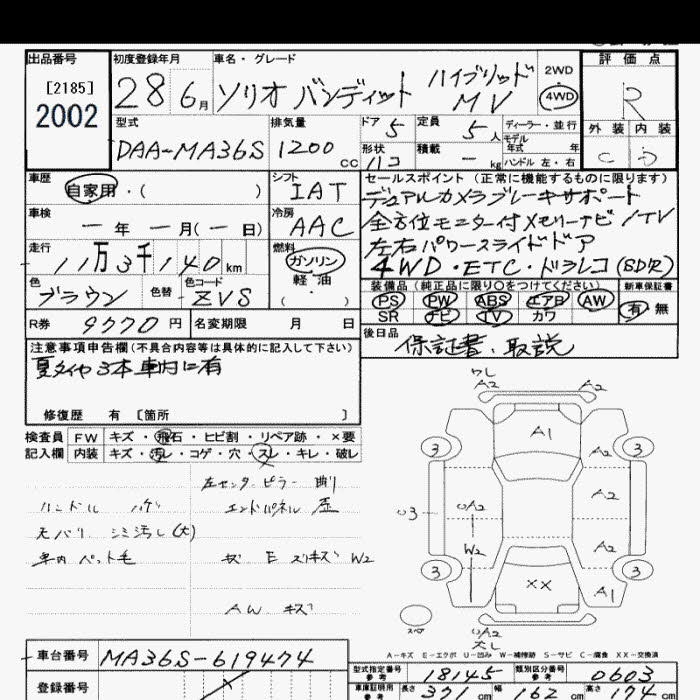 出品番号
[2185]
2002
初度登録年月
28 6月
車名・グレード
ソリオ バンディット ハイブリッド MV
2WD
4WD
評価点
R
外装 内装
C D
型式
DAA-MA36S
排気量
1200 cc
ドア 5
定員 5人
形状 ハコ
積載 ー kg
ディーラー・並行
モデル年式 年
ハンドル 左・右
車歴
自家用・( )
シフト
IAT
セールスポイント (正常に機能するものに限ります)
デュアルカメラブレーキサポート
全方位モニター付メモリーナビ/TV
左右パワースライドドア
4WD・ETC・ドラレコ(SDR)
車検
ー年 ー月(ー日)
冷房
AAC
走行
11万3千140km
燃料
ガソリン
軽油
( )
色
ブラウン
色替
色コード
ZVS
装備品 (純正品に限り○をつけてください)
PS PW ABS エアB AW
SR ナビ TV カワ
新車保証書
有 無
R券 9770円
名変期限 月 日
後日品
保証書、取説
注意事項申告欄(不具合内容等は具体的に記入して下さい)
夏タイヤ3本車内に有
修復歴 有 〔箇所 〕
検査員記入欄
FW キズ・飛石・ヒビ割・リペア跡・×要
内装 キズ・汚レ・コゲ・穴・スレ・キレ・破レ
左センターピラー 曲り
ハンドル ハゲ
エンドパネル 歪
天バリ シミ汚レ(大)
車内 ペット毛
キズ E スリキズ W2
AW キズ
ワレ
A2 A2
A1
3 3
A2
3 A2 A2
W2 A2
3 3
XX A1
スペア
A2
大レ
A-キズ E-エクボ U-凹み W-補修跡 S-サビ C-腐食 XX-交換済
車台番号 MA36S-619474
登録番号
型式指定番号 参考 18145
類別区分番号 参考 0603
車庫証明用 参考 長さ 371cm 幅 162cm 高さ 174cm